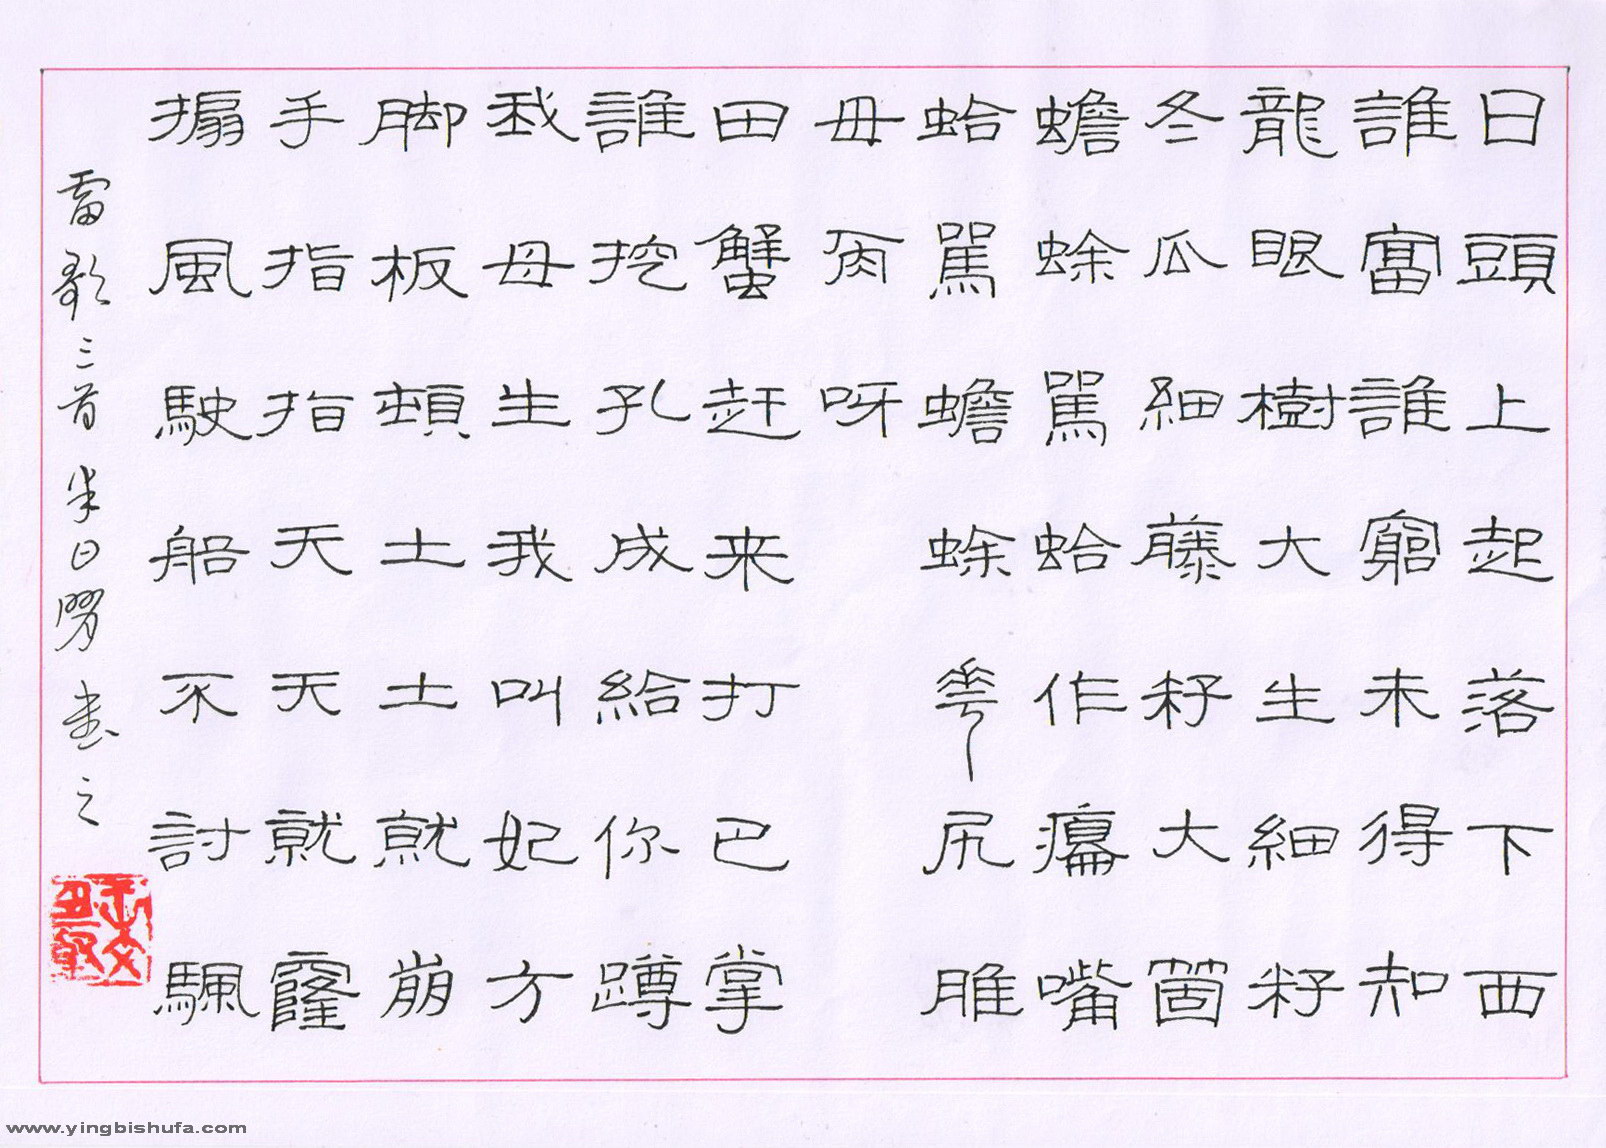 日頭上起落下西
誰富誰窮未得知
龍眼樹大生細籽
冬瓜細藤籽大箇
蟾蜍罵蛤作癟嘴
蛤罵蟾蜍尻脽
毋爾呀
田蟹赶来打巴掌
誰挖孔成給你蹲
我母生我叫妃方
脚板頓土土就崩
手指指天天就窿
搧風駛船不討颿
雷歌三首 半日閒書之
www.yingbishufa.com